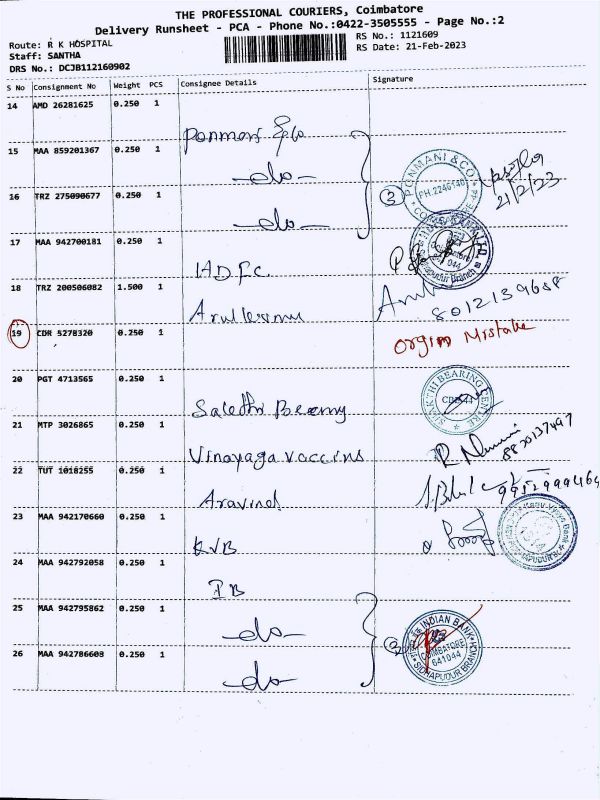 THE PROFESSIONAL COURIERS, Coimbatore
Delivery Runsheet - PCA - Phone No.:0422-3505555 - Page No.:2
Route: R K HOSPITAL
RS No.: 1121609
Staff: SANTHA
RS Date: 21-Feb-2023
DRS No.: DCJB112160902
S No Consignment No Weight PCS Consignee Details Signature
14 AMD 26281625 0.250 1
Ponmani &Co
15 MAA 859201367 0.250 1
-do-
PONMANI & CO
PH.2246140
21/2/23
16 TRZ 275090677 0.250 1
-do-
3
17 MAA 942700181 0.250 1
HDFC
18 TRZ 200506082 1.500 1
8012139688
19 CDR 5278320 0.250 1
Orgin Mistake
20 PGT 4713565 0.250 1
SHAKTHI BEARING CENTRE
21 MTP 3026865 0.250 1
Vinayaga vaccins
22 TUT 1018255 0.250 1
Aravind
23 MAA 942170660 0.250 1
KVB
24 MAA 942792058 0.250 1
IB
25 MAA 942795862 0.250 1
-do-
INDIAN BANK
COIMBATORE
641044
SIDHAPUDUR BRANCH
26 MAA 942786608 0.250 1
-do-